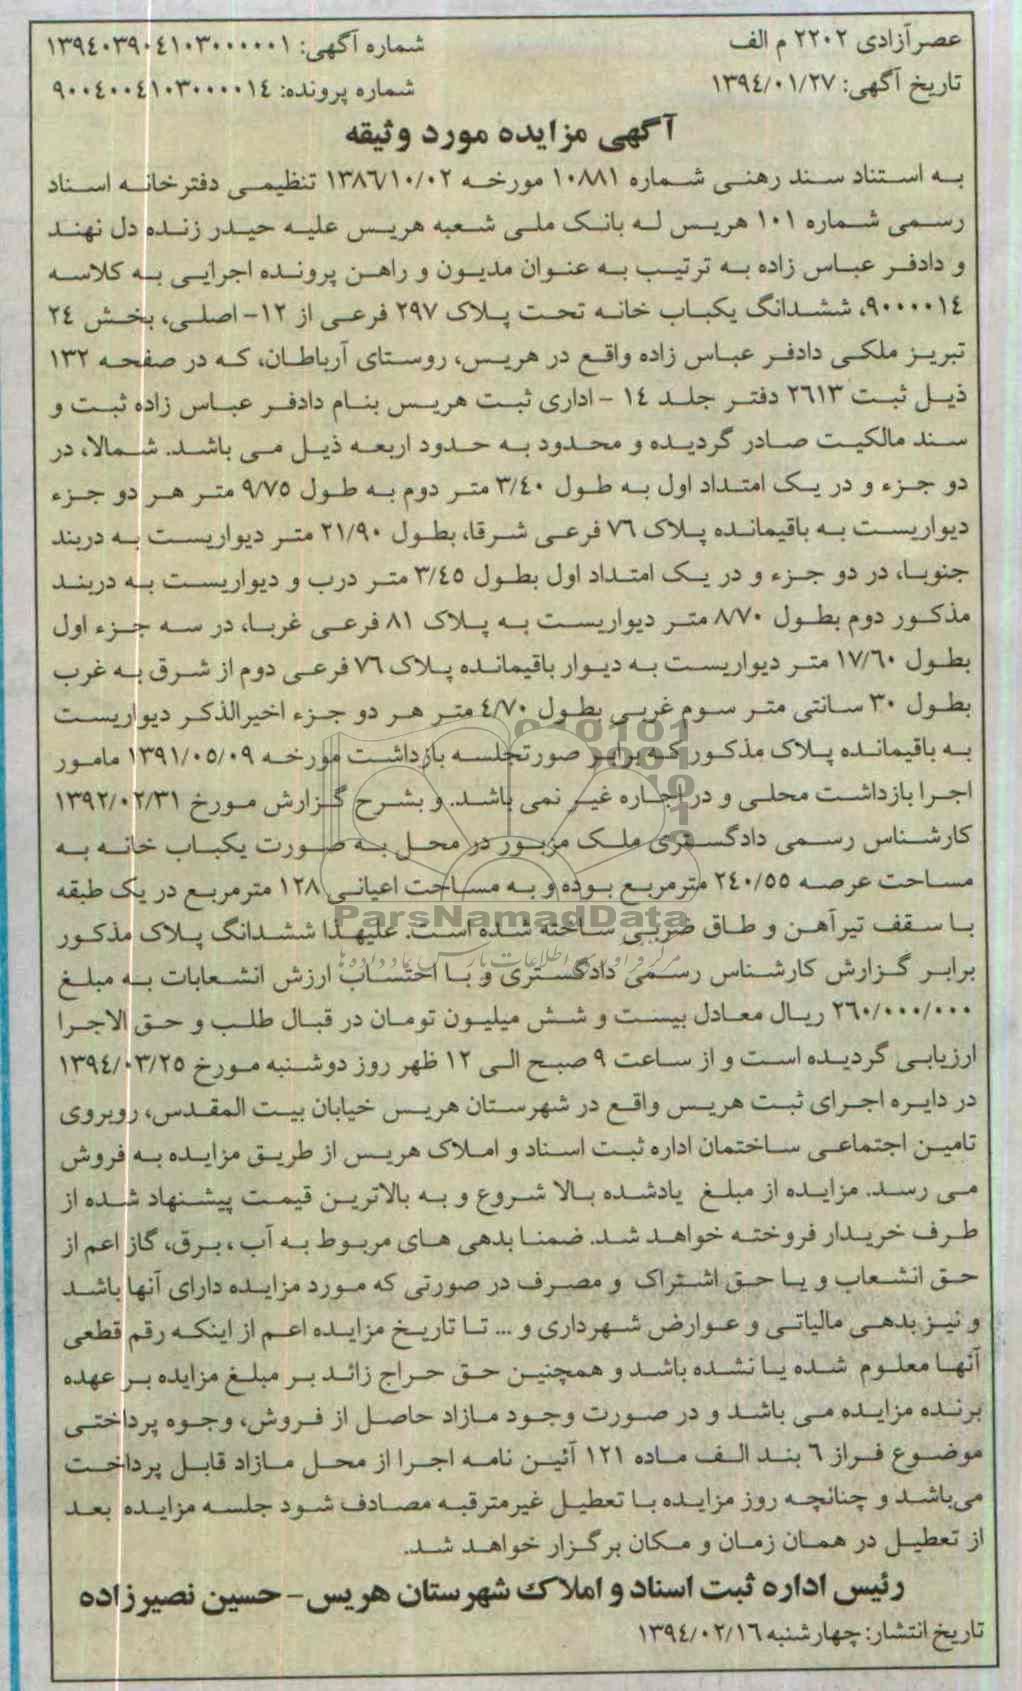 عصرآزادی ۲۲۰۲ م الف
شماره آگهی: ۱۳۹۴۰۳۹۰۴۱۰۳۰۰۰۰۰۱
تاریخ آگهی: ۱۳۹۴/۰۱/۲۷
شماره پرونده: ۹۰۰۴۰۰۴۱۰۳۰۰۰۰۱۴
آگهی مزایده مورد وثیقه
به استناد سند رهنی شماره ۱۰۸۸۱ مورخه ۱۳۸۶/۱۰/۰۲ تنظیمی دفترخانه اسناد
رسمی شماره ۱۰۱ هریس له بانک ملی شعبه هریس علیه حیدر زنده دل نهند
و دادفر عباس زاده به ترتیب به عنوان مدیون و راهن پرونده اجرایی به کلاسه
۹۰۰۰۰۱۴، ششدانگ یکباب خانه تحت پلاک ۲۹۷ فرعی از ۱۲- اصلی، بخش ۲۴
تبریز ملکی دادفر عباس زاده واقع در هریس، روستای آرباطان، که در صفحه ۱۳۲
ذیل ثبت ۲۶۱۳ دفتر جلد ۱۴ - اداری ثبت هریس بنام دادفر عباس زاده ثبت و
سند مالکیت صادر گردیده و محدود به حدود اربعه ذیل می باشد. شمالا، در
دو جزء و در یک امتداد اول به طول ۳/۴۰ متر دوم به طول ۹/۷۵ متر هر دو جزء
دیواریست به باقیمانده پلاک ۷۶ فرعی شرقا، بطول ۲۱/۹۰ متر دیواریست به دربند
جنوبا، در دو جزء و در یک امتداد اول بطول ۳/۴۵ متر درب و دیواریست به دربند
مذکور دوم بطول ۸/۷۰ متر دیواریست به پلاک ۸۱ فرعی غربا، در سه جزء اول
بطول ۱۷/۶۰ متر دیواریست به دیوار باقیمانده پلاک ۷۶ فرعی دوم از شرق به غرب
بطول ۳۰ سانتی متر سوم غربی بطول ۴/۷۰ متر هر دو جزء اخیرالذکر دیواریست
به باقیمانده پلاک مذکور که برابر صورتجلسه بازداشت مورخه ۱۳۹۱/۰۵/۰۹ مامور
اجرا بازداشت محلی و در اجاره غیر نمی باشد. و بشرح گزارش مورخ ۱۳۹۲/۰۲/۳۱
کارشناس رسمی دادگستری ملک مزبور در محل به صورت یکباب خانه به
مساحت عرصه ۲۴۰/۵۵ مترمربع بوده و به مساحت اعیانی ۱۲۸ مترمربع در یک طبقه
ParsNamadData
با سقف تیرآهن و طاق ضربی ساخته شده است. علیهذا ششدانگ پلاک مذکور
برابر گزارش کارشناس رسمی دادگستری و با احتساب ارزش انشعابات به مبلغ
۲۶۰/۰۰۰/۰۰۰ ریال معادل بیست و شش میلیون تومان در قبال طلب و حق الاجرا
ارزیابی گردیده است و از ساعت ۹ صبح الی ۱۲ ظهر روز دوشنبه مورخ ۱۳۹۴/۰۳/۲۵
در دایره اجرای ثبت هریس واقع در شهرستان هریس خیابان بیت المقدس، روبروی
تامین اجتماعی ساختمان اداره ثبت اسناد و املاک هریس از طریق مزایده به فروش
می رسد. مزایده از مبلغ یادشده بالا شروع و به بالاترین قیمت پیشنهاد شده از
طرف خریدار فروخته خواهد شد. ضمنا بدهی های مربوط به آب ، برق، گاز اعم از
حق انشعاب و یا حق اشتراک و مصرف در صورتی که مورد مزایده دارای آنها باشد
و نیز بدهی مالیاتی و عوارض شهرداری و ... تا تاریخ مزایده اعم از اینکه رقم قطعی
آنها معلوم شده یا نشده باشد و همچنین حق حراج زائد بر مبلغ مزایده بر عهده
برنده مزایده می باشد و در صورت وجود مازاد حاصل از فروش، وجوه پرداختی
موضوع فراز ۶ بند الف ماده ۱۲۱ آئین نامه اجرا از محل مازاد قابل پرداخت
می‌باشد و چنانچه روز مزایده با تعطیل غیرمترقبه مصادف شود جلسه مزایده بعد
از تعطیل در همان زمان و مکان برگزار خواهد شد.
رئیس اداره ثبت اسناد و املاک شهرستان هریس- حسین نصیرزاده
تاریخ انتشار: چهارشنبه ۱۳۹۴/۰۲/۱۶